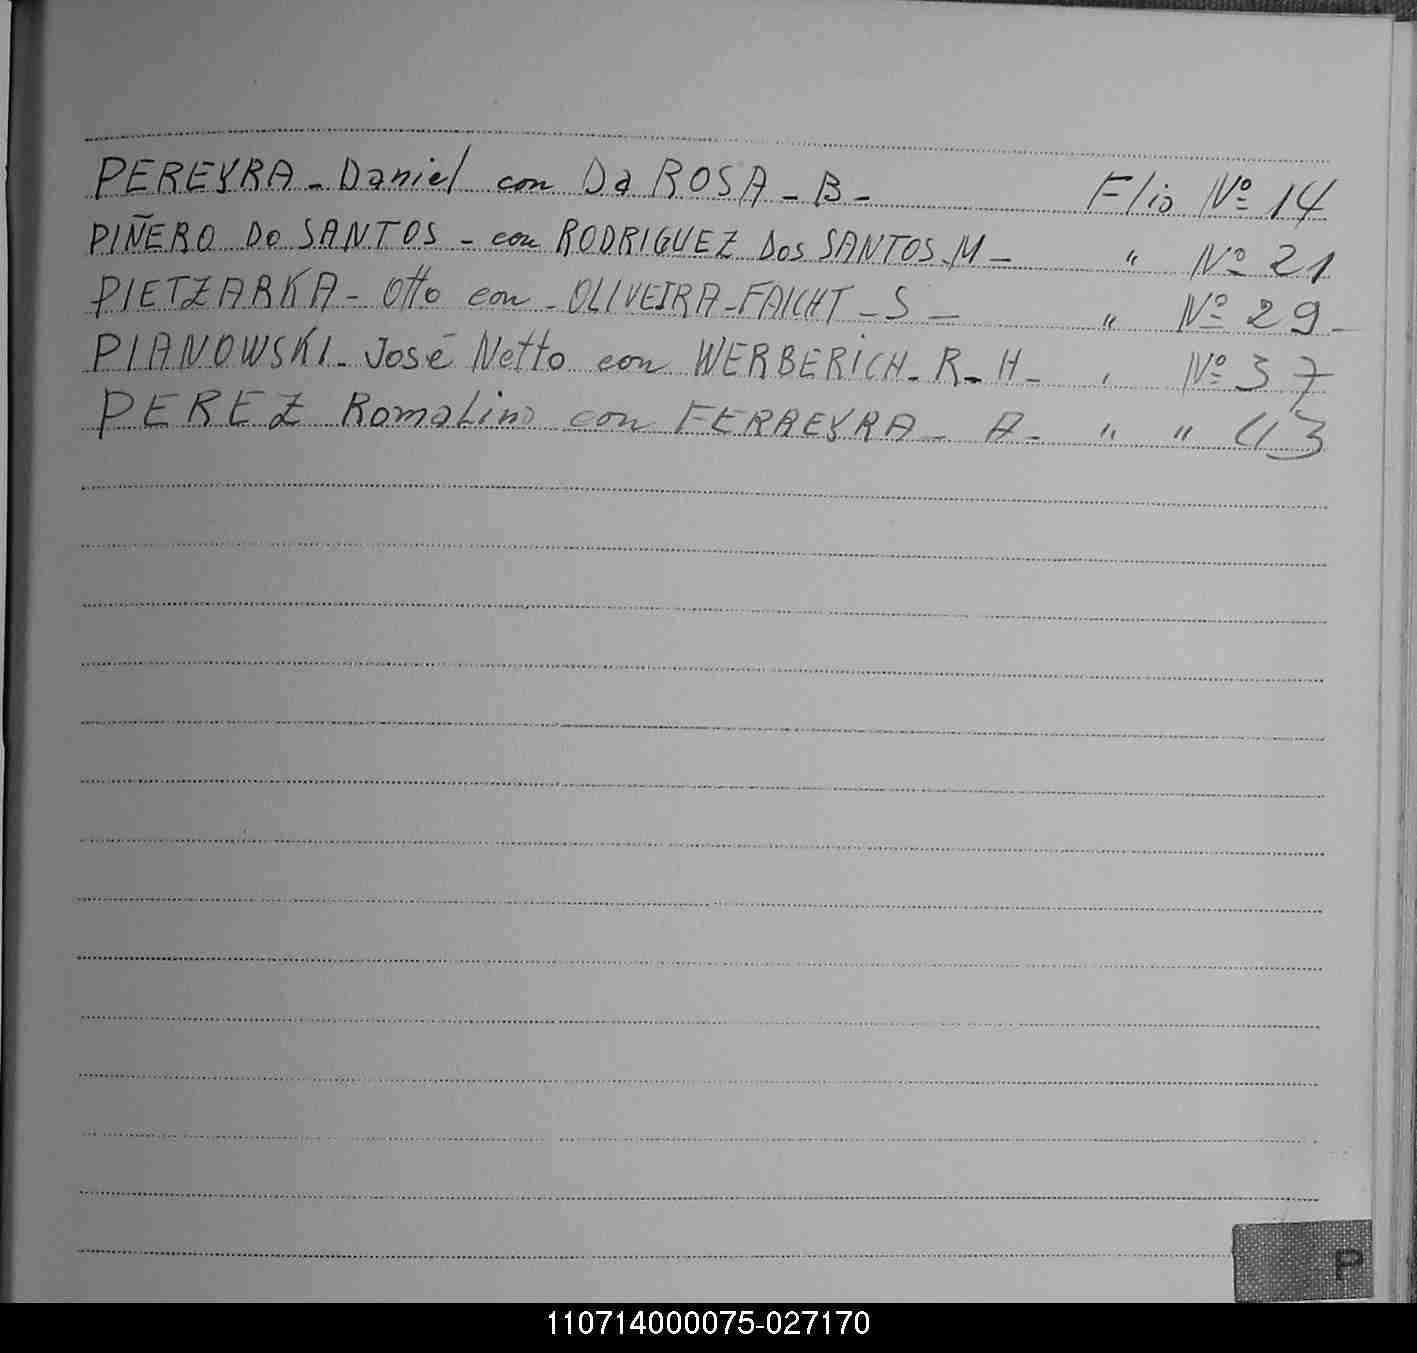 PEREYRA - Daniel con Da ROSA - B - Flio Nº 14
PIÑERO Do SANTOS - con RODRIGUEZ Dos SANTOS - M - " Nº 21
PIETZARKA - Otto con - OLIVEIRA - FAICHT - S - " Nº 29 -
PIANOWSKI - José Netto con WERBERICH - R - H - " Nº 37
PEREZ Romalino con FERREYRA - A - " " 43
P
110714000075-027170